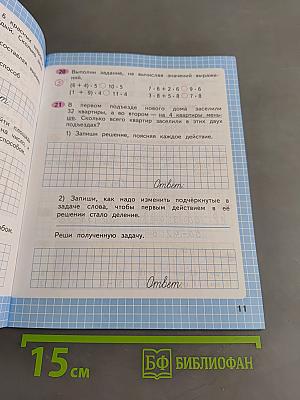 20 Выполни задание, не вычисляя значений выраже-
ний.
(6 + 4) · 5 ○ 10 · 5 7 · 6 + 2 · 6 ○ 9 · 6
(1 + 9) · 4 ○ 11 · 4 3 · 8 + 5 · 8 ○ 7 · 8
21 В первом подъезде нового дома заселили
32 квартиры, а во втором — на 4 квартиры мень-
ше. Сколько всего квартир заселили в этих двух
подъездах?
1) Запиши решение, поясняя каждое действие.
Ответ:
2) Запиши, как надо изменить подчёркнутые в
задаче слова, чтобы первым действием в её
решении стало деление.
Реши полученную задачу.
Ответ:
11
15 см
БФ БИБЛИОФАН